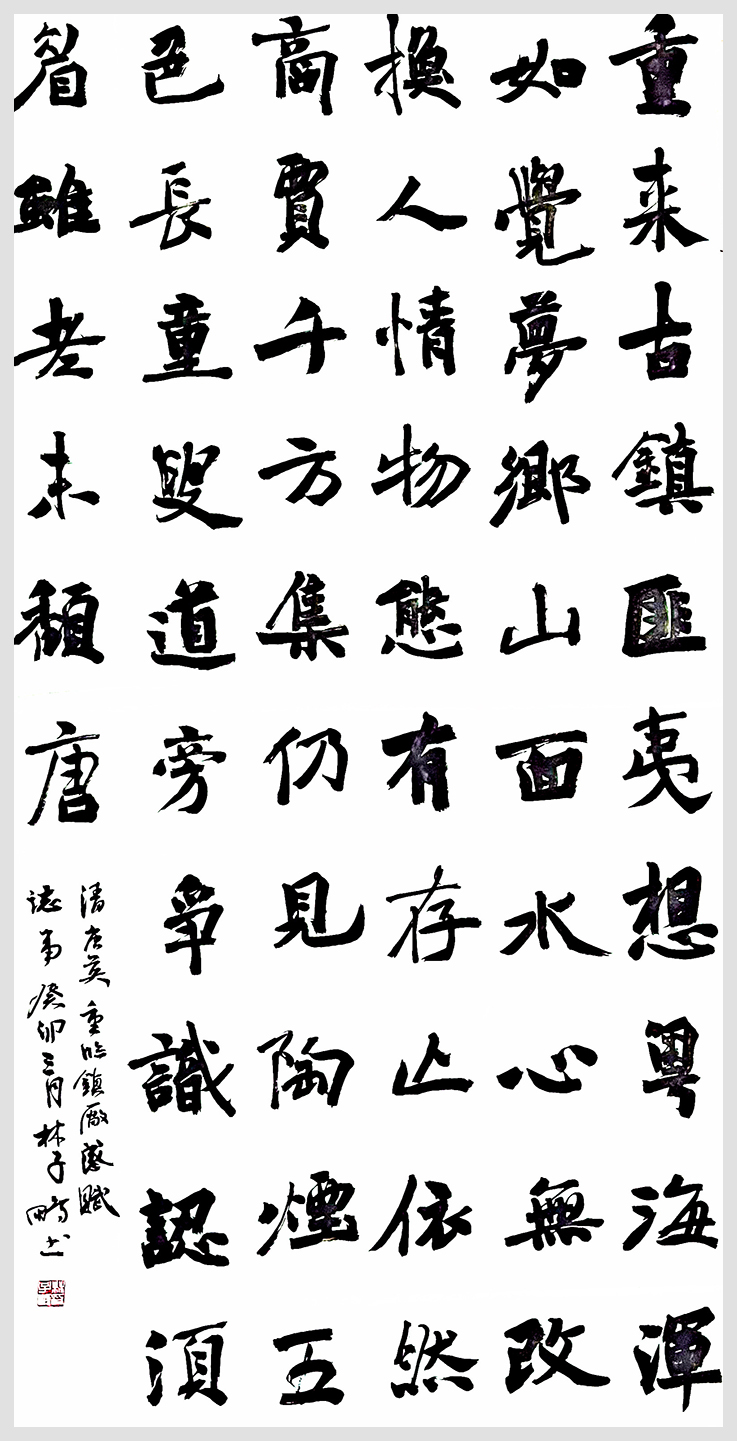 重来古鎮匪夷想粵海渾
如覺夢鄉山面水心無改
換人情物態有存止依然
商賈千方集仍見陶煙五
色長童叟道旁爭識認須
眉雖老未頹唐
清唐英重臨鎮廠感賦
誌事癸卯三月林子書